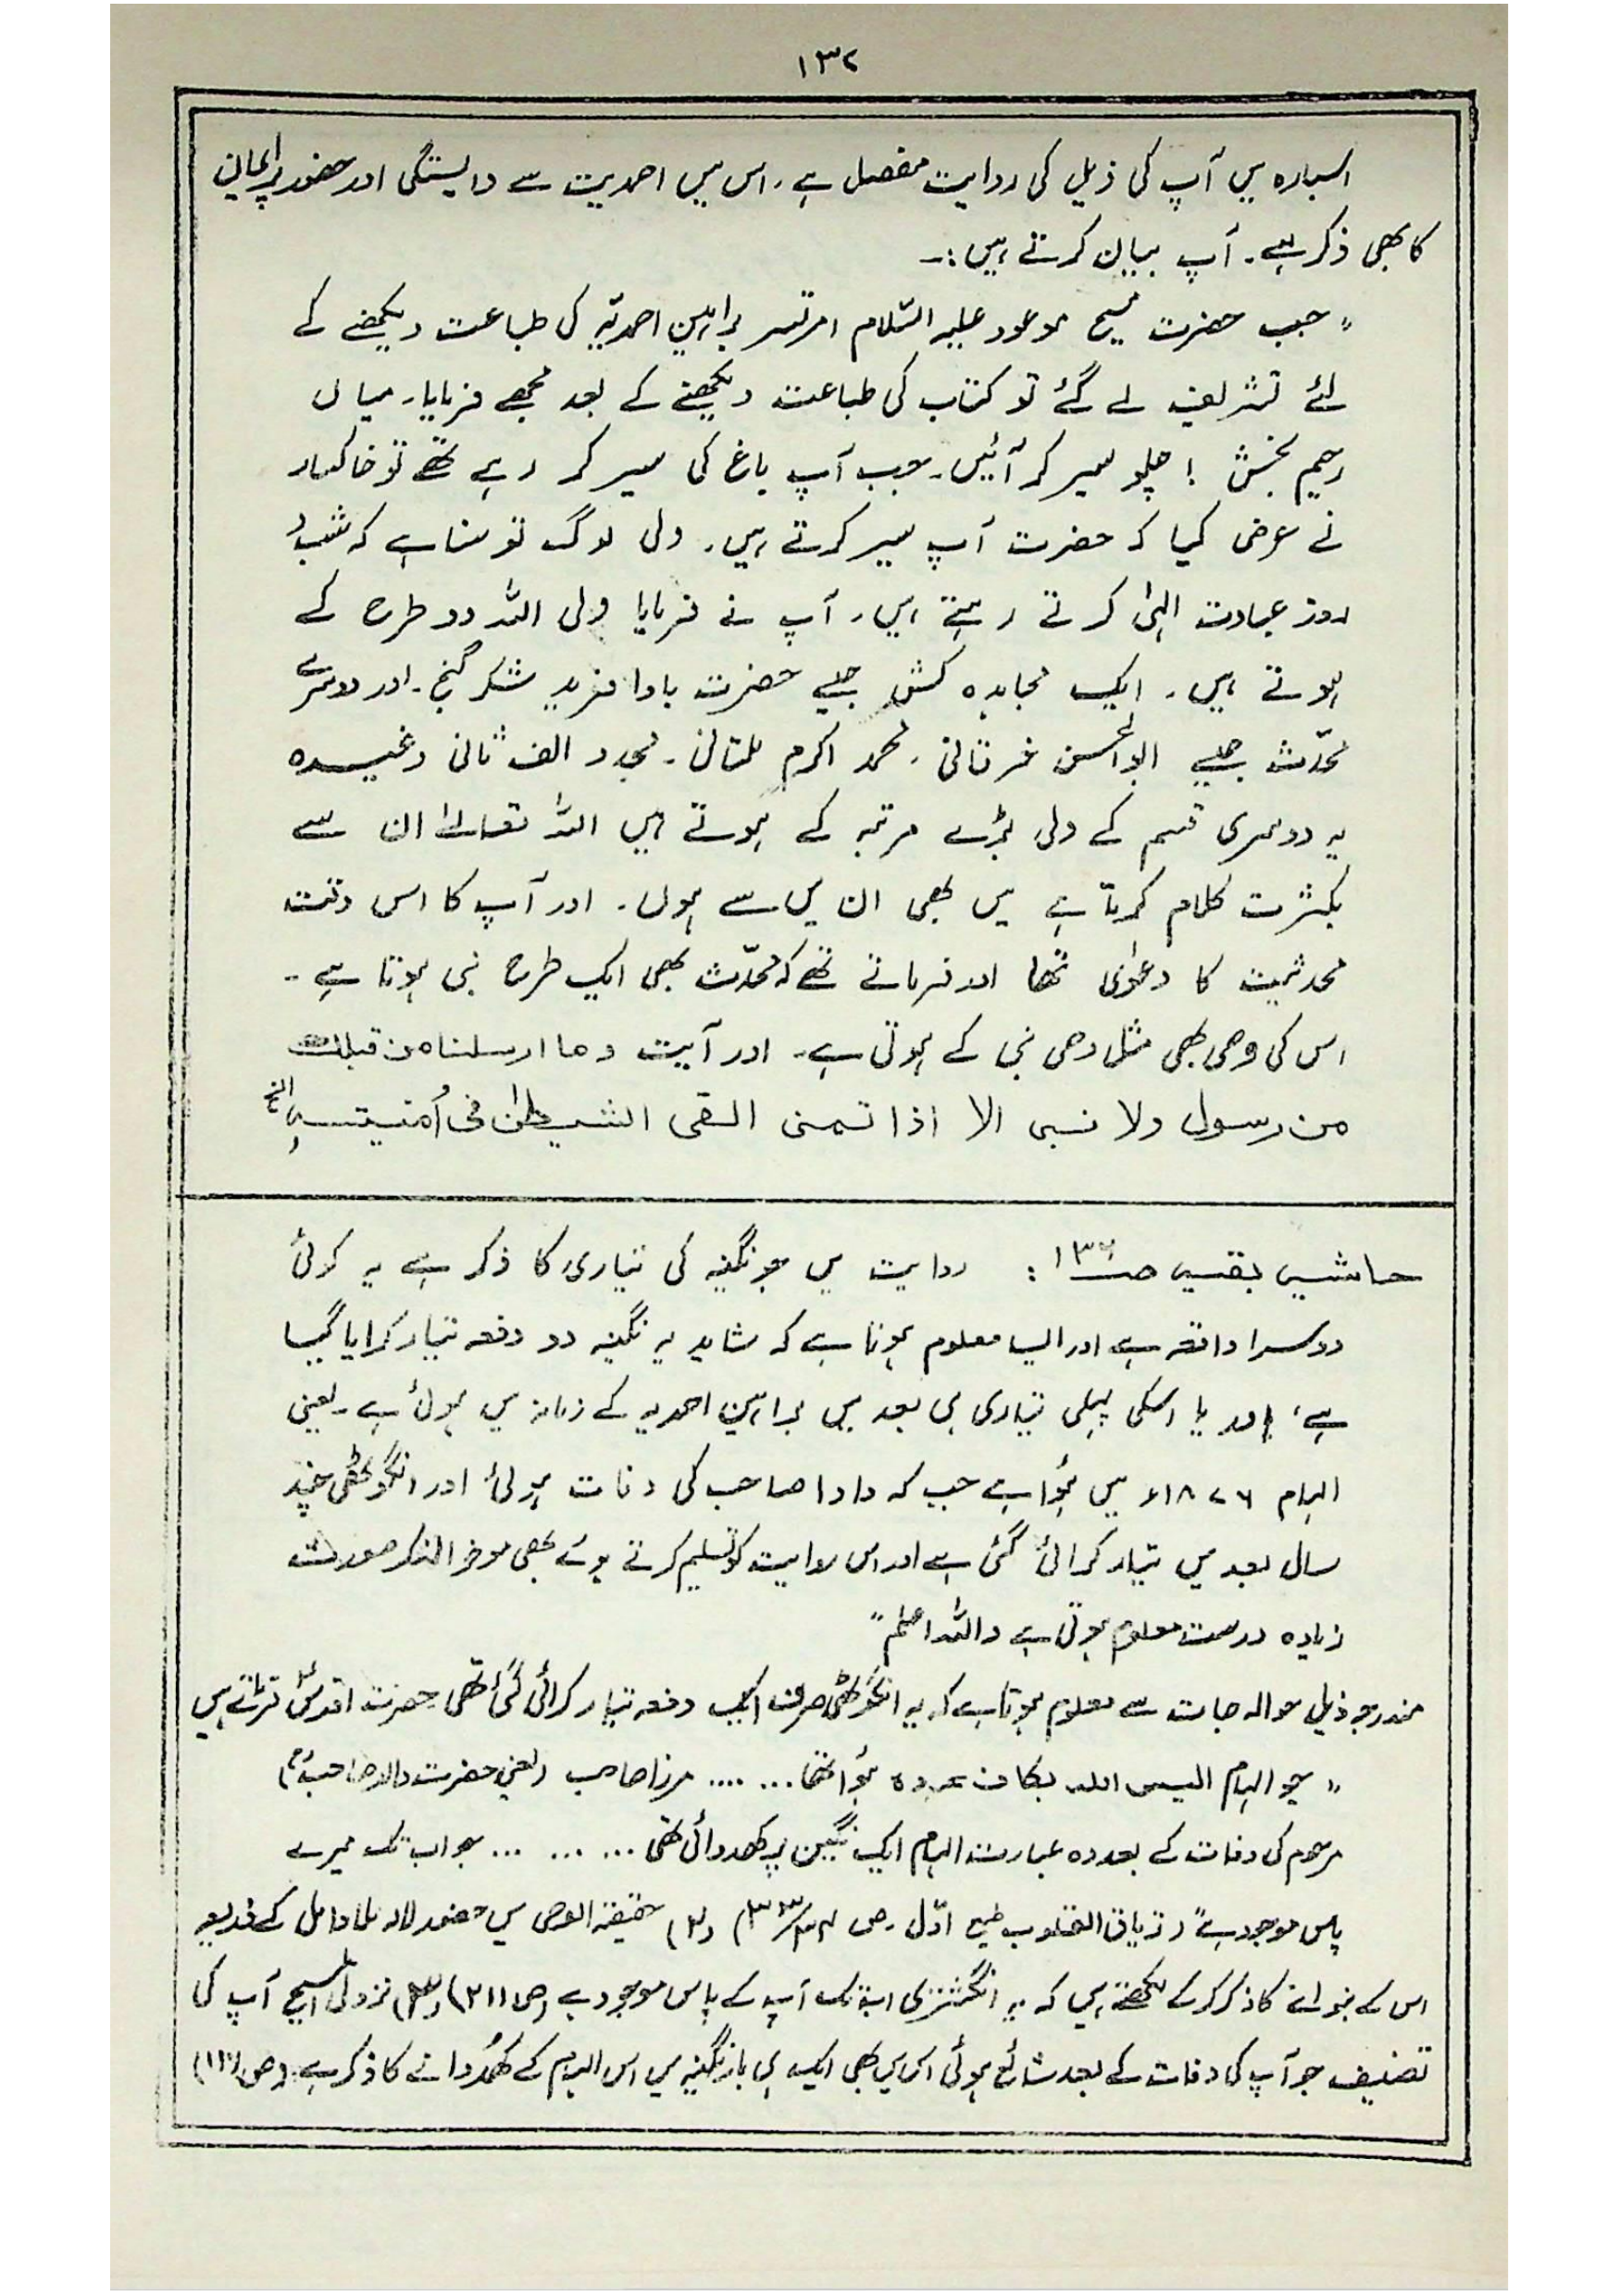 ۱۳۲
اسبارہ میں آپ کی ذیل کی روایت مفصل ہے۔ اس میں احمدیت سے وابستگی اور حضور پر ایمان
کا بھی ذکر ہے۔ آپ بیان کرتے ہیں:۔
" جب حضرت مسیح موعود علیہ السّلام امرتسر براہین احمدیّہ کی طباعت دیکھنے کے
لئے تشریف لے گئے تو کتاب کی طباعت دیکھنے کے بعد مجھے فرمایا۔ میاں
رحیم بخش ! چلو سیر کر آئیں۔ جب آپ باغ کی سیر کر رہے تھے تو خاکسار
نے عرض کیا کہ حضرت آپ سیر کرتے ہیں۔ ولی لوگ تو سنا ہے کہ شب و
روز عبادت الٰہی کرتے رہتے ہیں۔ آپ نے فرمایا ولی اللہ دو طرح کے
ہوتے ہیں۔ ایک مجاہدہ کش جیسے حضرت باوا فرید شکر گنج۔ اور دوسرے
محدّث جیسے ابوالحسن خرقانی۔ محمد اکرم ملتانی۔ مجدد الف ثانی وغیرہ
یہ دوسری قسم کے ولی بڑے مرتبہ کے ہوتے ہیں اللہ تعالےٰ ان سے
بکثرت کلام کرتا ہے میں بھی ان میں سے ہوں۔ اور آپ کا اس وقت
محدثیت کا دعوٰی تھا اور فرماتے تھے کہ محدّث بھی ایک طرح نبی ہوتا ہے۔
اس کی وحی بھی مثل وحی نبی کے ہوتی ہے۔ اور آیت وما ارسلنا من قبلک
من رسول ولا نبی الا اذا تمنی القی الشیطٰن فی اُمنیتہٖ الخ
حاشیہ بقیہ ص۱۳۱: روایت میں جو نگینہ کی تیاری کا ذکر ہے یہ کوئی
دوسرا واقعہ ہے اور ایسا معلوم ہوتا ہے کہ شاید یہ نگینہ دو دفعہ تیار کرایا گیا
ہے، اور یا اسکی پہلی تیاری ہی بعد میں براہین احمدیہ کے زمانہ میں ہوئی ہے۔ یعنی
الہام ۱۸۷۶ء میں ہُوا ہے جب کہ دادا صاحب کی وفات ہوئی اور انگوٹھی چند
سال بعد میں تیار کرائی گئی ہے اور اس روایت کو تسلیم کرتے ہوئے بھی موخر الذکر صورت
زیادہ درست معلوم ہوتی ہے واللہ اعلم"
مندرجہ ذیل حوالہ جات سے معلوم ہوتا ہے کہ یہ انگوٹھی صرف ایک دفعہ تیار کرائی گئی تھی حضرت اقدسؑ فرماتے ہیں
" جو الہام الیس اللہ بکاف عبدہ ہُوا تھا ... .... مرزا صاحب (یعنی حضرت والد صاحبؓ)
مرحوم کی وفات کے بعد وہ عبارت الہام ایک نگین پر کھدوائی تھی ... ... ... جو اب تک میرے
پاس موجود ہے" (تریاق القلوب طبع اوّل ص ) (۲) حقیقۃ الوحی میں حضور لالہ ملاوامل کے ذریعہ
اس کے بنوانے کا ذکر کرکے لکھتے ہیں کہ یہ انگشتری ابتک آپ کے پاس موجود ہے (ص۲۱۱) (۳) نزول المسیح آپ کی
تصنیف جو آپ کی وفات کے بعد شائع ہوئی اس میں بھی ایک ہی بار نگینہ میں اس الہام کے کھُدوانے کا ذکر ہے۔